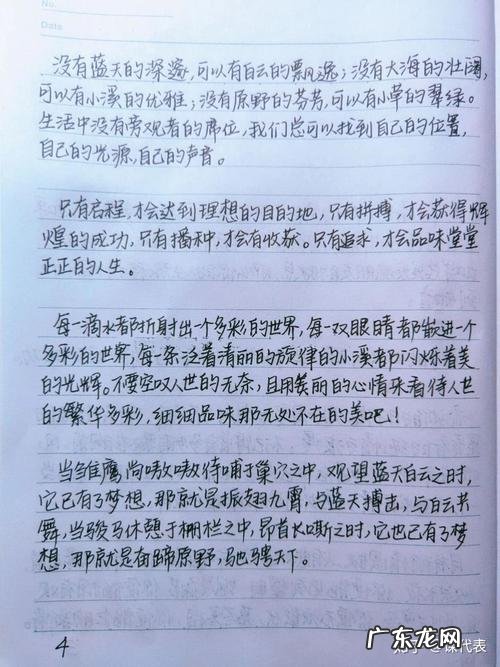 No.
Date
没有蓝天的深邃,可以有白云的飘逸;没有大海的壮阔,
可以有小溪的优雅;没有原野的芬芳,可以有小草的翠绿。
生活中没有旁观者的席位,我们总可以找到自己的位置,
自己的光源,自己的声音。
只有启程,才会达到理想的目的地,只有拼搏,才会获得辉
煌的成功,只有播种,才会有收获。只有追求,才会品味堂堂
正正的人生。
每一滴水都折射出一个多彩的世界,每一双眼睛都散进一个
多彩的世界,每一条泛着清丽的旋律的小溪都闪烁着美
的光辉。不要空叹人世的无奈,且用美丽的心情来看待人世
的繁华多彩,细细品味那无处不在的美吧!
当雏鹰尚嗷嗷待哺于巢穴之中,观望蓝天白云之时,
它已有了梦想,那就是振翅九霄,与蓝天搏击,与白云共
舞,当骏马休憩于栅栏之中,昂首长嘶之时,它也已有了梦
想,那就是奋蹄原野,驰骋天下。
4
广东龙网
www.gdlwcoe.com
课代表